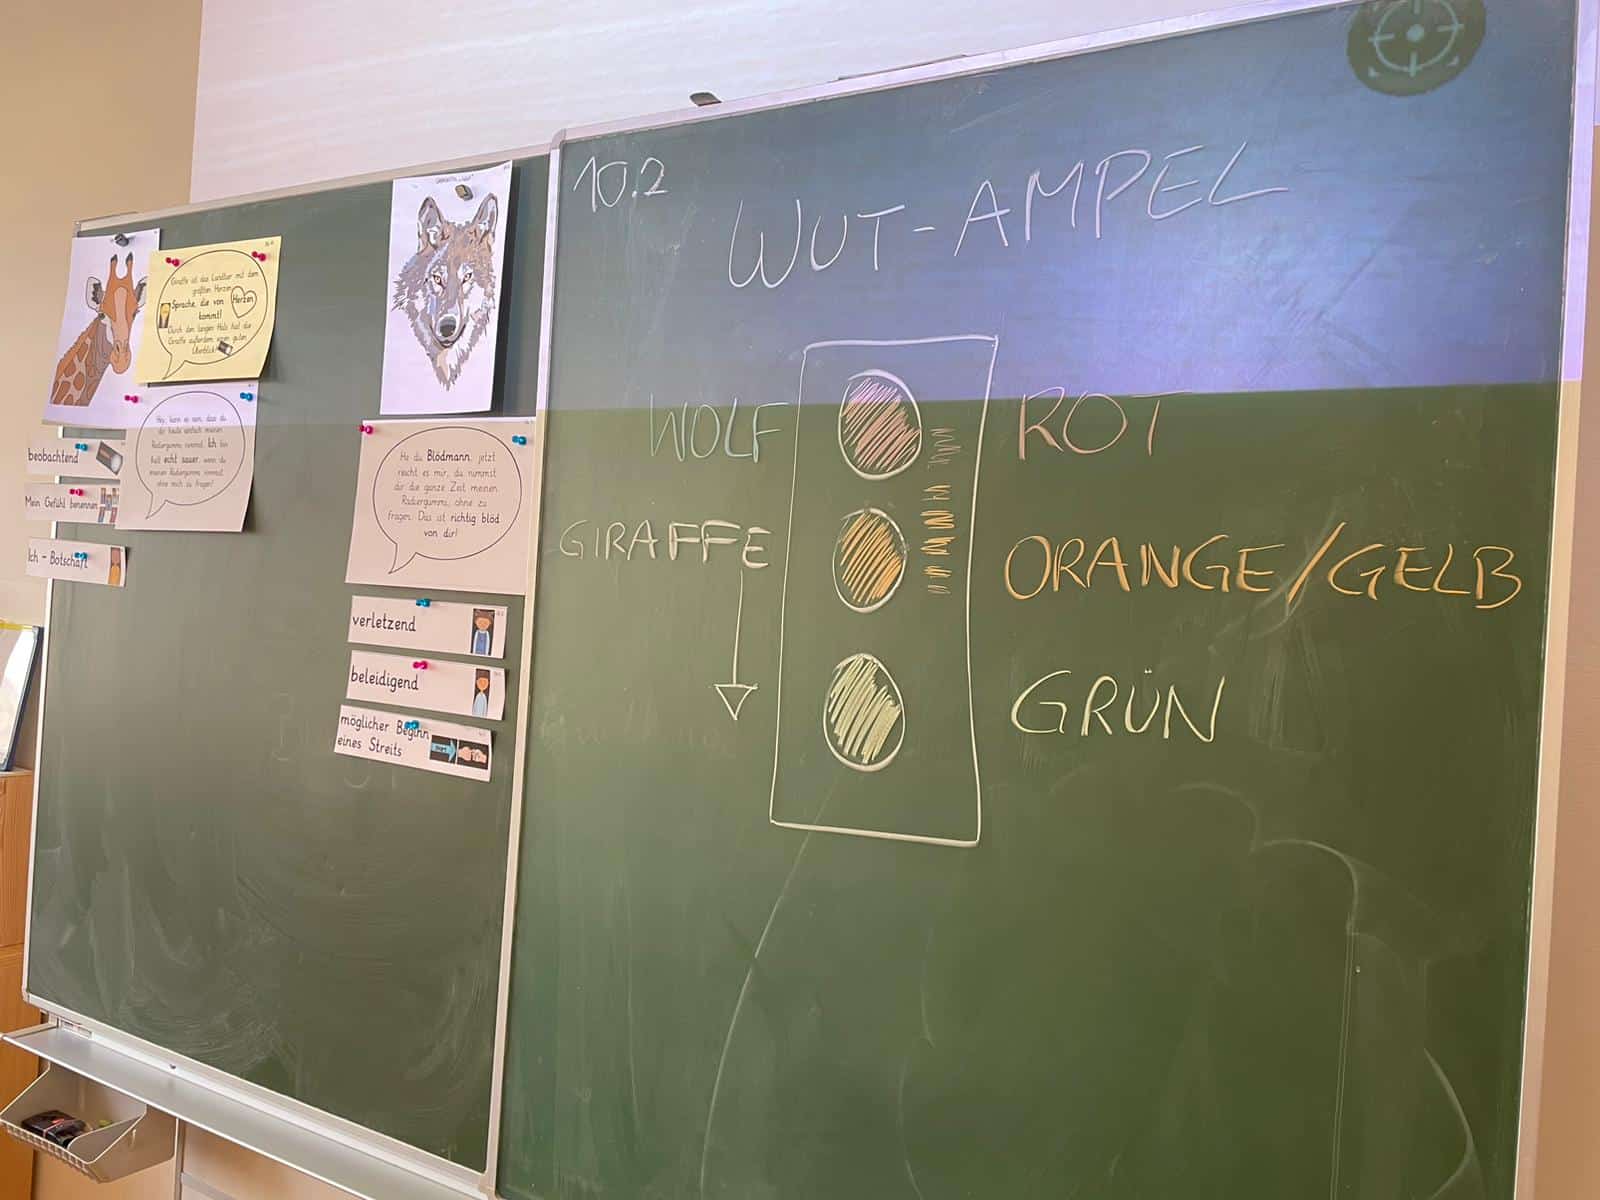 Giraffe ist das Landtier mit dem
größten Herzen
Sprache, die von Herzen
kommt!
Durch den langen Hals hat die
Giraffe außerdem guten
Überblick!
Hey, kann es sein, dass du
dir heute einfach meinen
Radiergummi nimmst. Ich bin
echt sauer, wenn du
meinen Radiergummi nimmst,
ohne mich zu fragen!
beobachtend
Mein Gefühl benennen
Ich - Botschaft
He du Blödmann, jetzt
reicht es mir, du nimmst
dir die ganze Zeit meinen
Radiergummi, ohne zu
fragen. Das ist richtig blöd
von dir!
verletzend
beleidigend
möglicher Beginn
eines Streits
10.2
WUT-AMPEL
WOLF ROT
GIRAFFE ORANGE/GELB
GRÜN